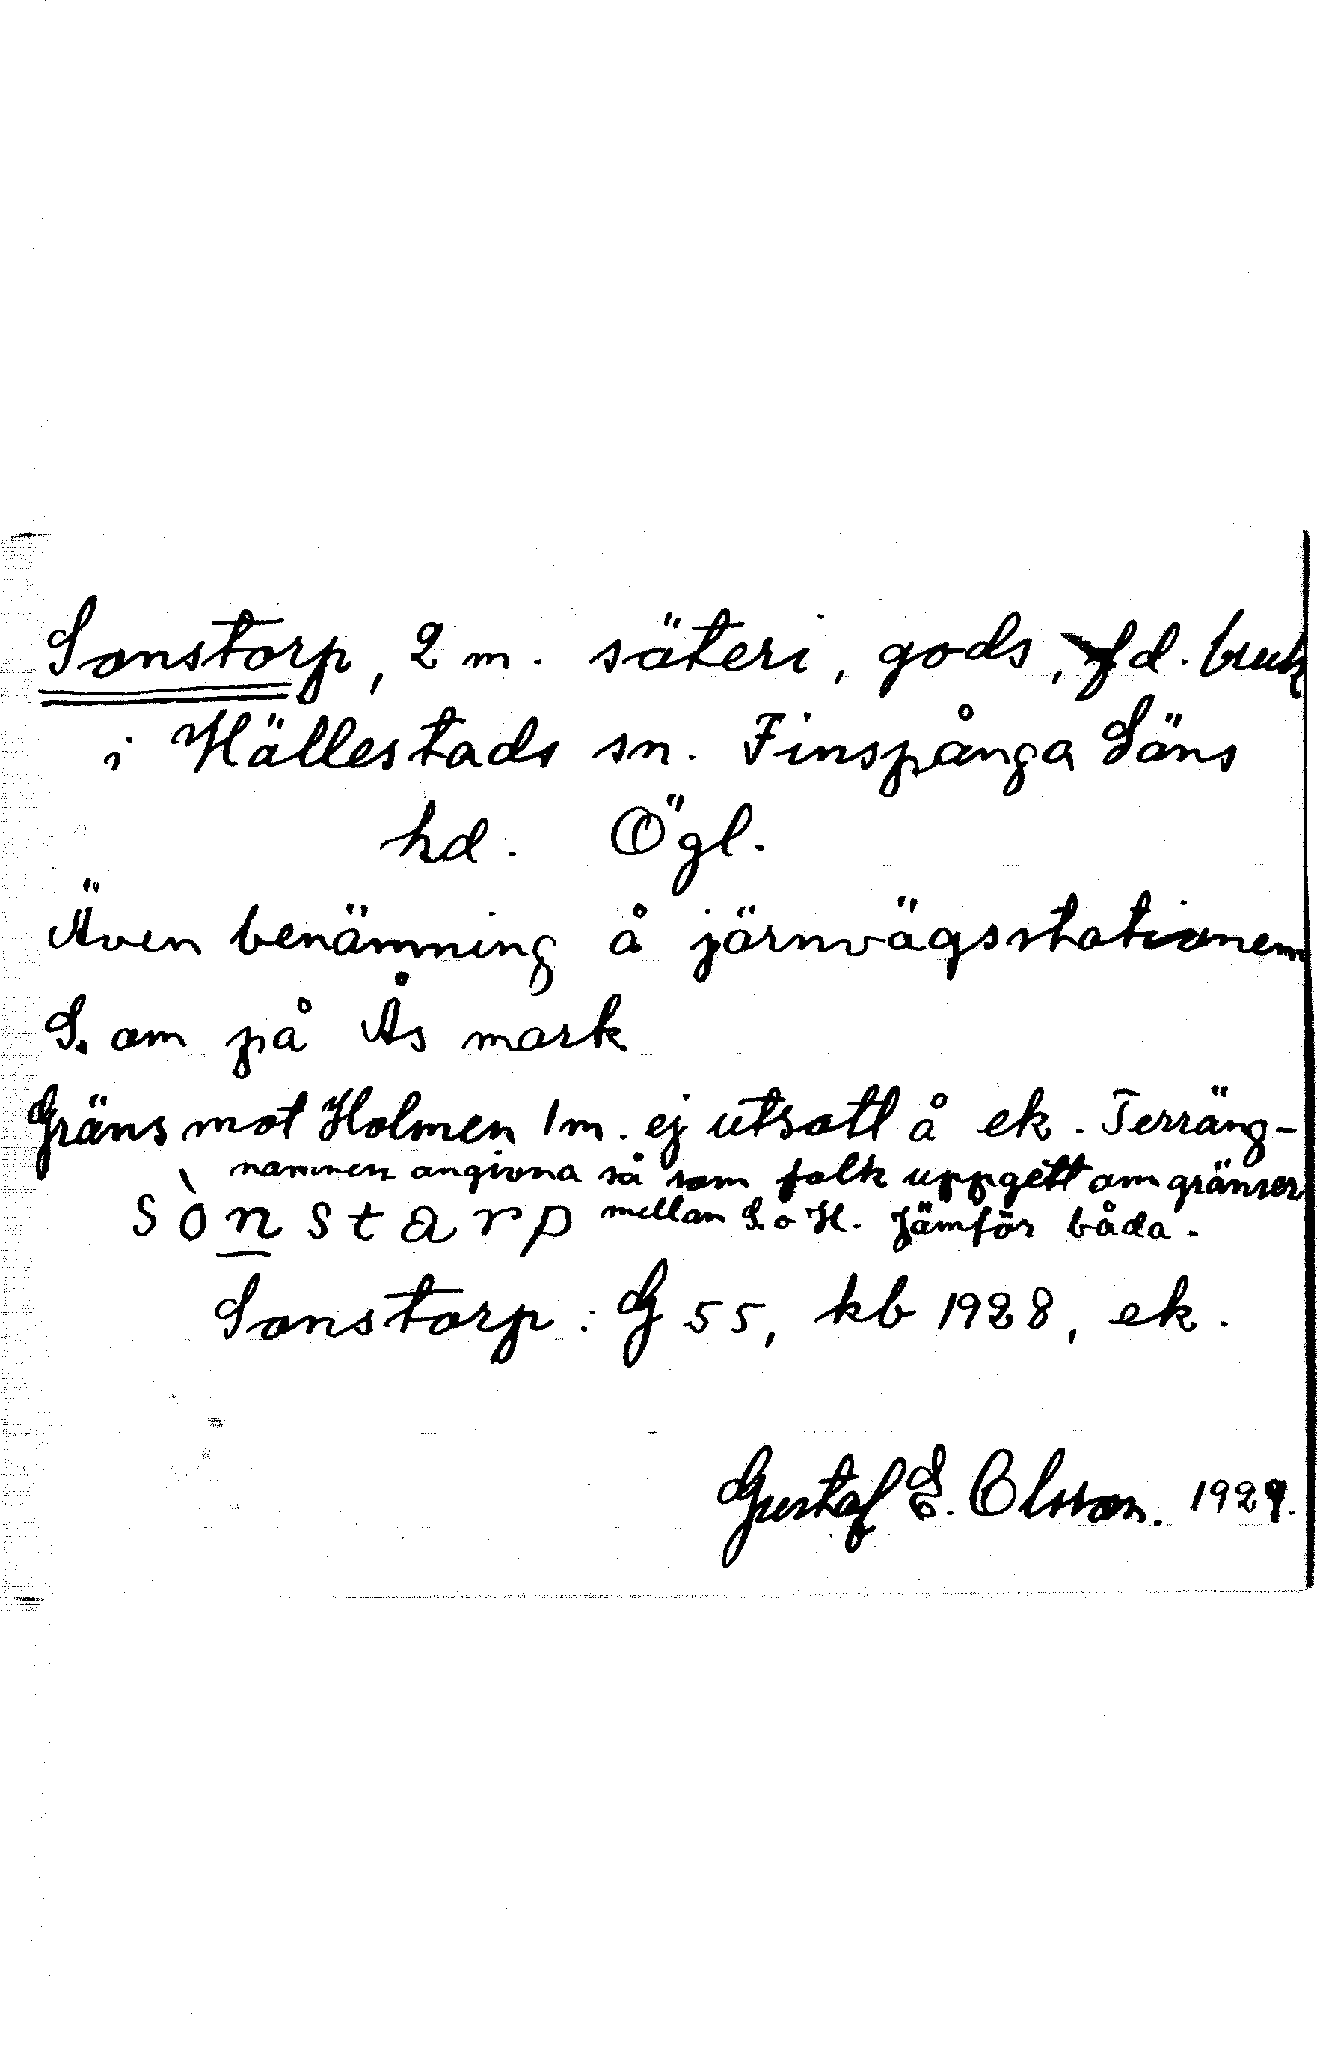 Sonstorp, 2 m. säteri, gods, fd. bruk
i Hällestads sn. Finspånga Läns
hd. Ögl.
Även benämning å järnvägsstationen
S. om på Ås mark
Gräns mot Holmen 1 m. ej utsatt å ek. Terräng-
namnen angivna så som folk uppgett om gränser
mellan S. o H. Jämför båda.
sònstarp
Sonstorp : G 55, kb 1928, ek.
Gustaf E. Olsson. 1929.